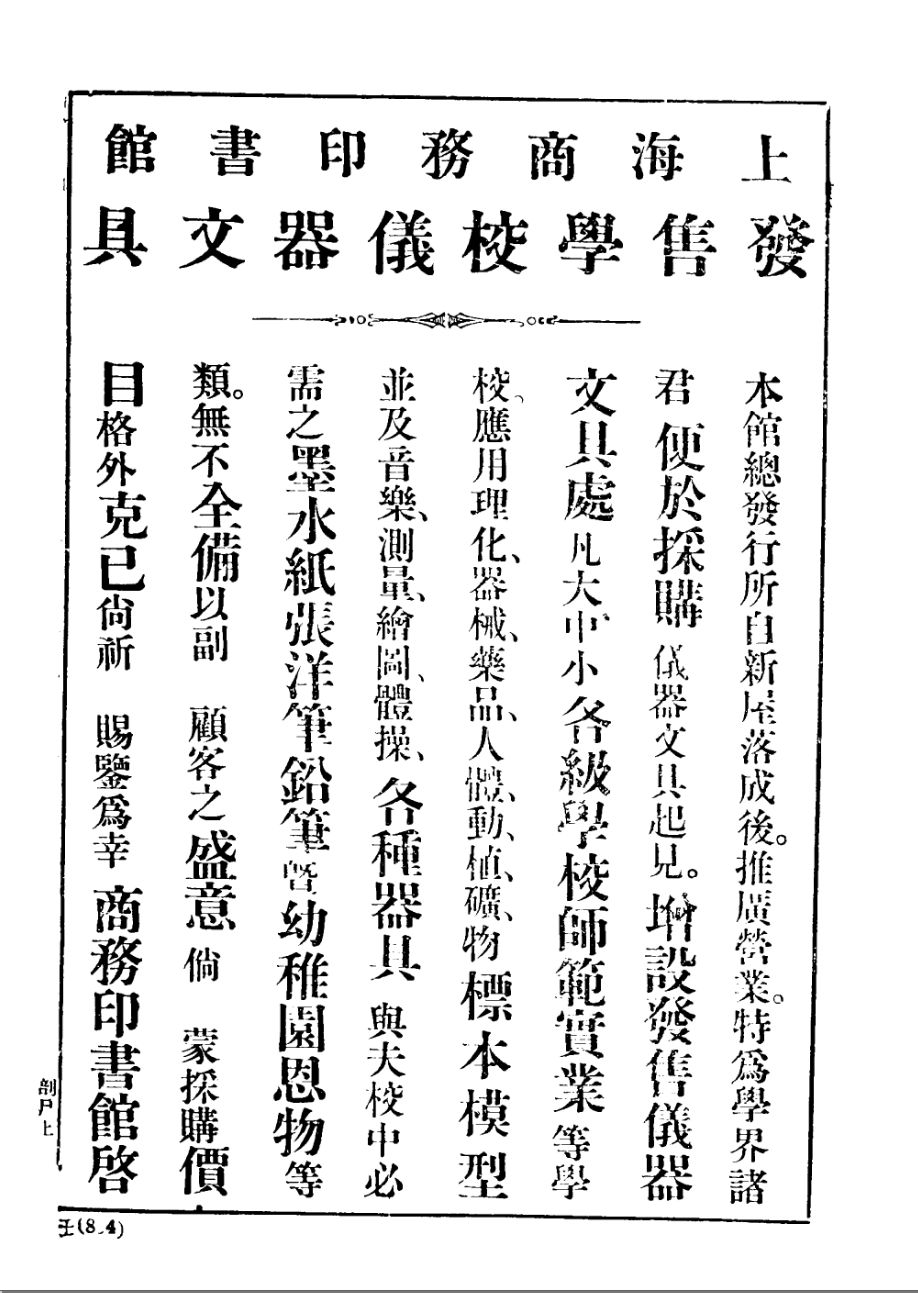 上海商務印書館
發售學校儀器文具
本館總發行所自新屋落成後。推廣營業。特爲學界諸
君便於採購儀器文具起見。增設發售儀器
文具處凡大中小各級學校師範實業等學
校、應用理化、器械、藥品、人體、動、植、礦、物標本模型
並及音樂、測量、繪圖、體操、各種器具與夫校中必
需之墨水紙張洋筆鉛筆曁幼稚園恩物等
類。無不全備以副 顧客之盛意倘 蒙採購價
目格外克己尙祈 賜鑒爲幸 商務印書館啓
剖尸上
壬(8_4)